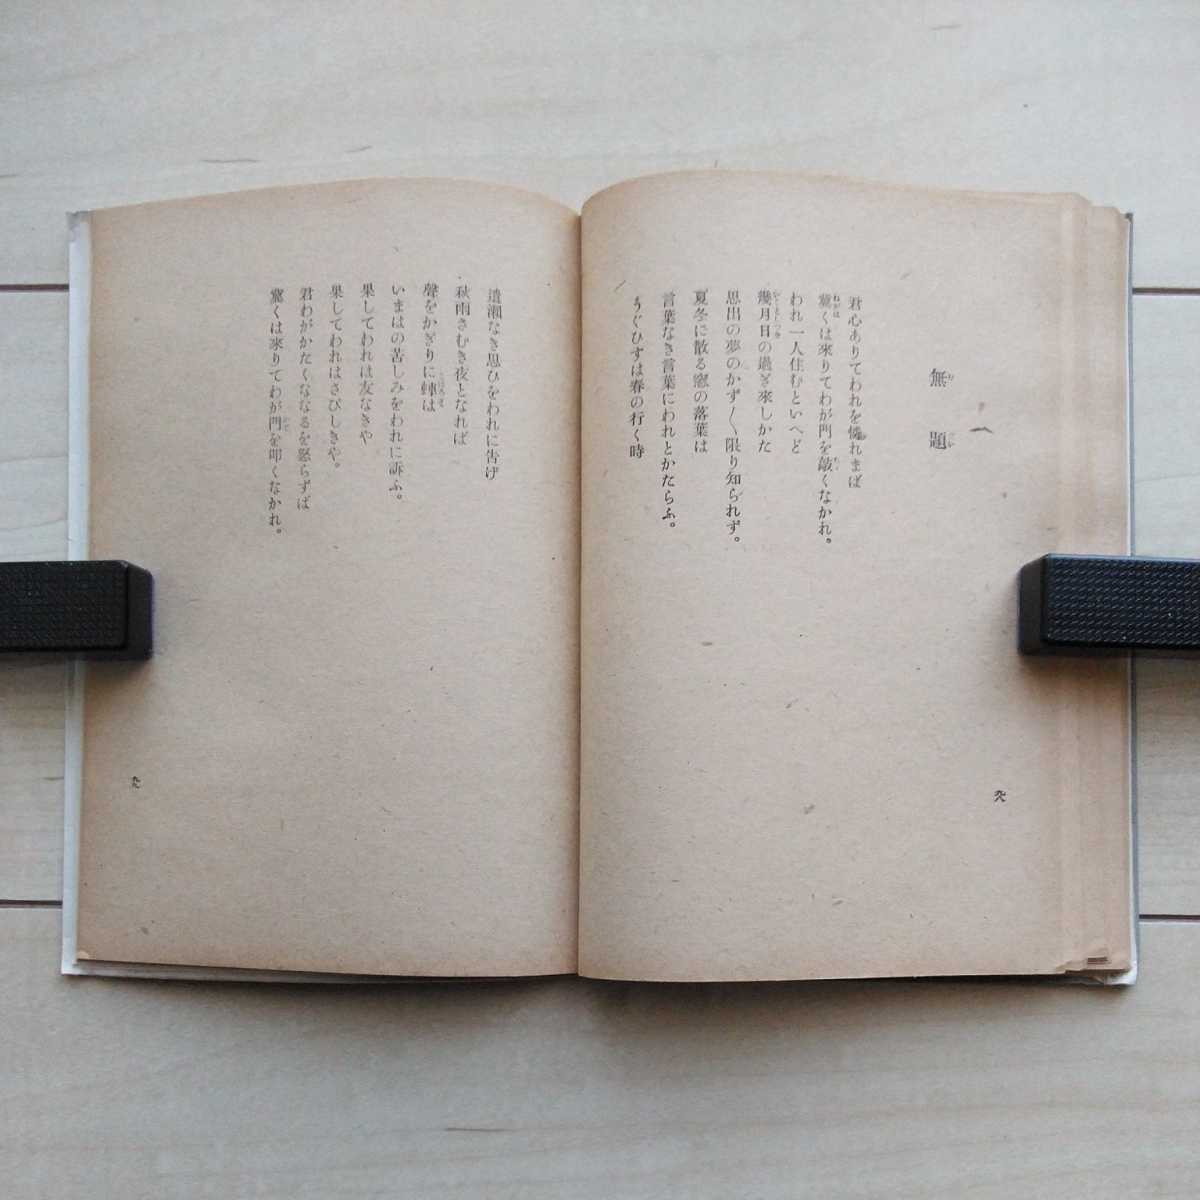 無題
君心ありてわれを憐れまば
冀くは來りてわが門を敲くなかれ。
われ一人住むといへど
幾月日の過ぎ來しかた
思出の夢のかず〱限り知られず。
夏冬に散る窓の落葉は
言葉なき言葉にわれとかたらふ。
うぐひすは春の行く時
九八
遣瀨なき思ひをわれに告げ
秋雨さむき夜となれば
聲をかぎりに蟀は
いまはの苦しみをわれに訴ふ。
果してわれは友なきや
果してわれはさびしきや。
君わがかたくななるを怒らずば
冀くは來りてわが門を叩くなかれ。
九九